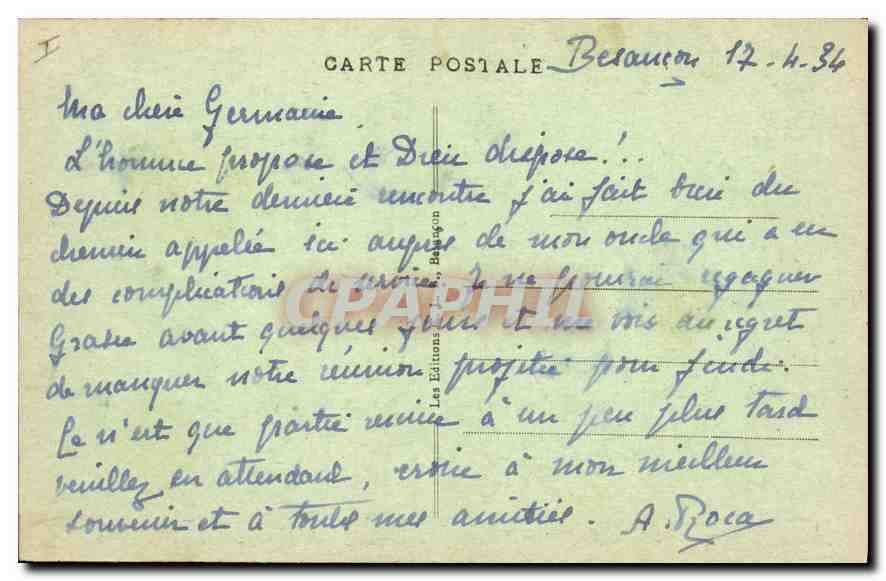 I
CARTE POSTALE
Besançon 17-4-34
Ma chère Germaine
L'homme propose et Dieu dispose!..
Depuis notre dernière rencontre j'ai fait bien du
chemin appelée ici auprès de mon oncle qui a eu
des complications de service. Je ne pourrai regagner
Grasse avant quelques jours et me vois au regret
de manquer notre réunion projetée pour jeudi.
Ce n'est que partie remise à un peu plus tard
veuillez en attendant, croire à mon meilleur
souvenir et à toutes mes amitiés. A. Roca
Les Editions Besançon
CPAPHIL